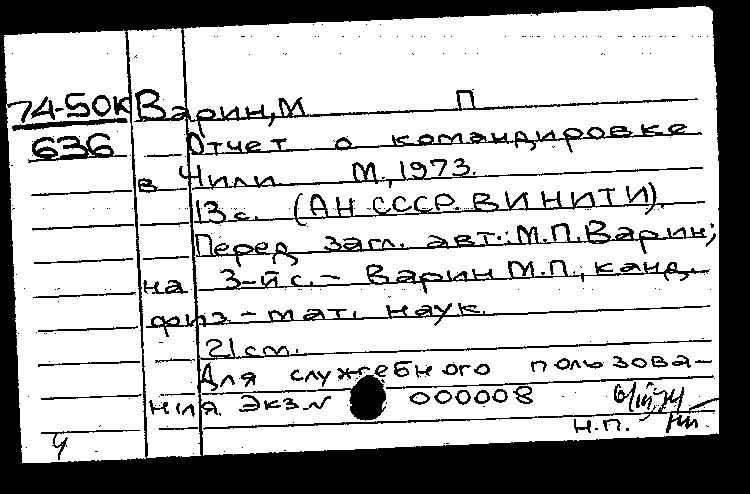 74-50К Варин, М П
636 Отчет о командировке
в Чили М., 1973.
13 с. (АН СССР. ВИНИТИ).
Перед загл. авт.: М.П. Варин;
на 3-й с. - Варин М.П., канд.
физ-мат. наук.
21 см.
Для служебного пользова-
ния. Экз. № 000008
Н.П.
ч